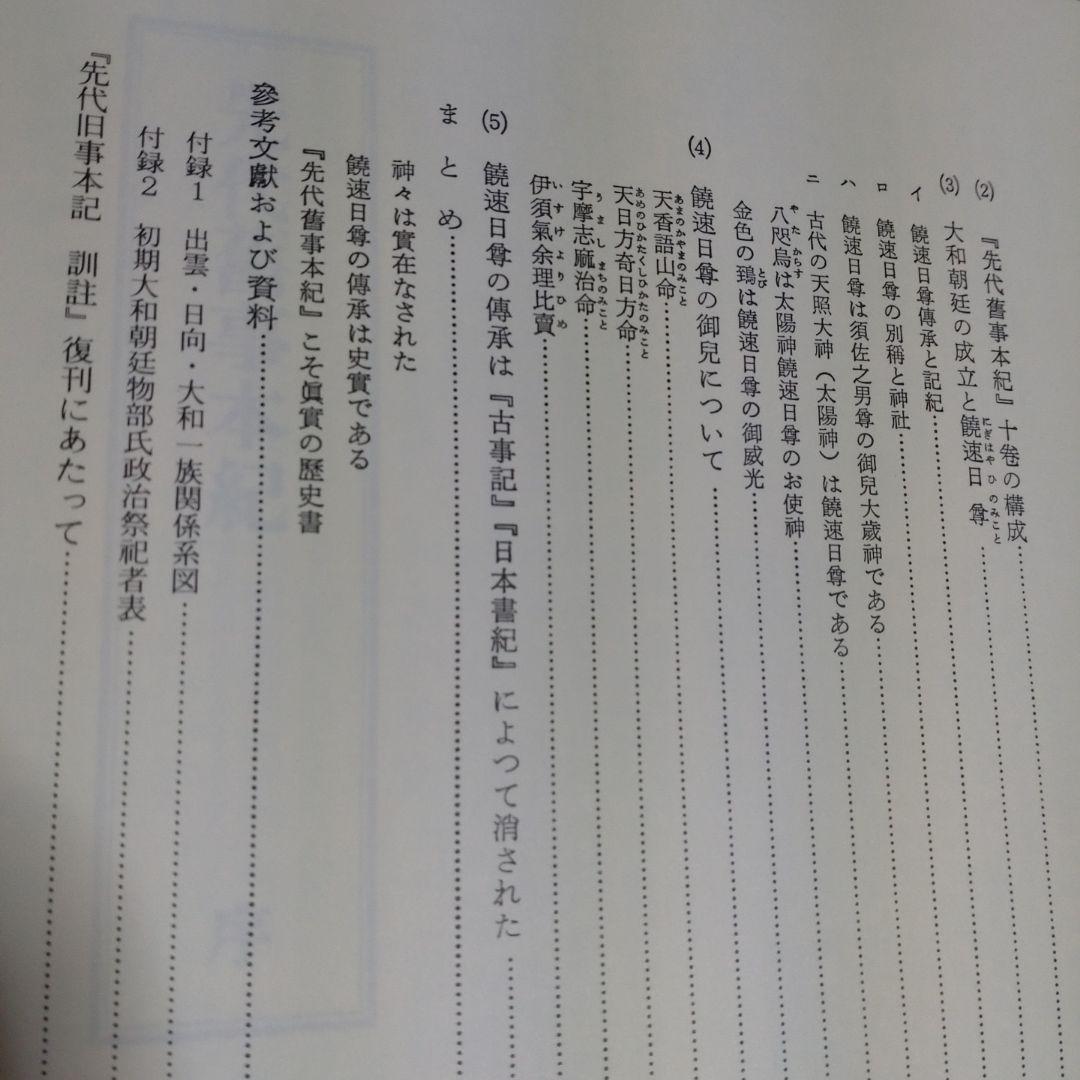 (2) 『先代舊事本紀』十卷の構成
(3) 大和朝廷の成立と饒速日尊
にぎはやひのみこと
イ 饒速日尊傳承と記紀
ロ 饒速日尊の別稱と神社
ハ 饒速日尊は須佐之男尊の御兒大歲神である
ニ 古代の天照大神（太陽神）は饒速日尊である
八咫烏は太陽神饒速日尊のお使神
やたからす
金色の鵄は饒速日尊の御威光
とび
(4) 饒速日尊の御兒について
天香語山命
あまのかやまのみこと
天日方奇日方命
あめのひかたくしひかたのみこと
宇摩志麻治命
うましまちのみこと
伊須氣余理比賣
いすけよりひめ
(5) 饒速日尊の傳承は『古事記』『日本書紀』によつて消された
まとめ
神々は實在なされた
饒速日尊の傳承は史實である
『先代舊事本紀』こそ眞實の歷史書
參考文獻および資料
付録1 出雲・日向・大和一族関係系図
付録2 初期大和朝廷物部氏政治祭祀者表
『先代旧事本記 訓註』復刊にあたって